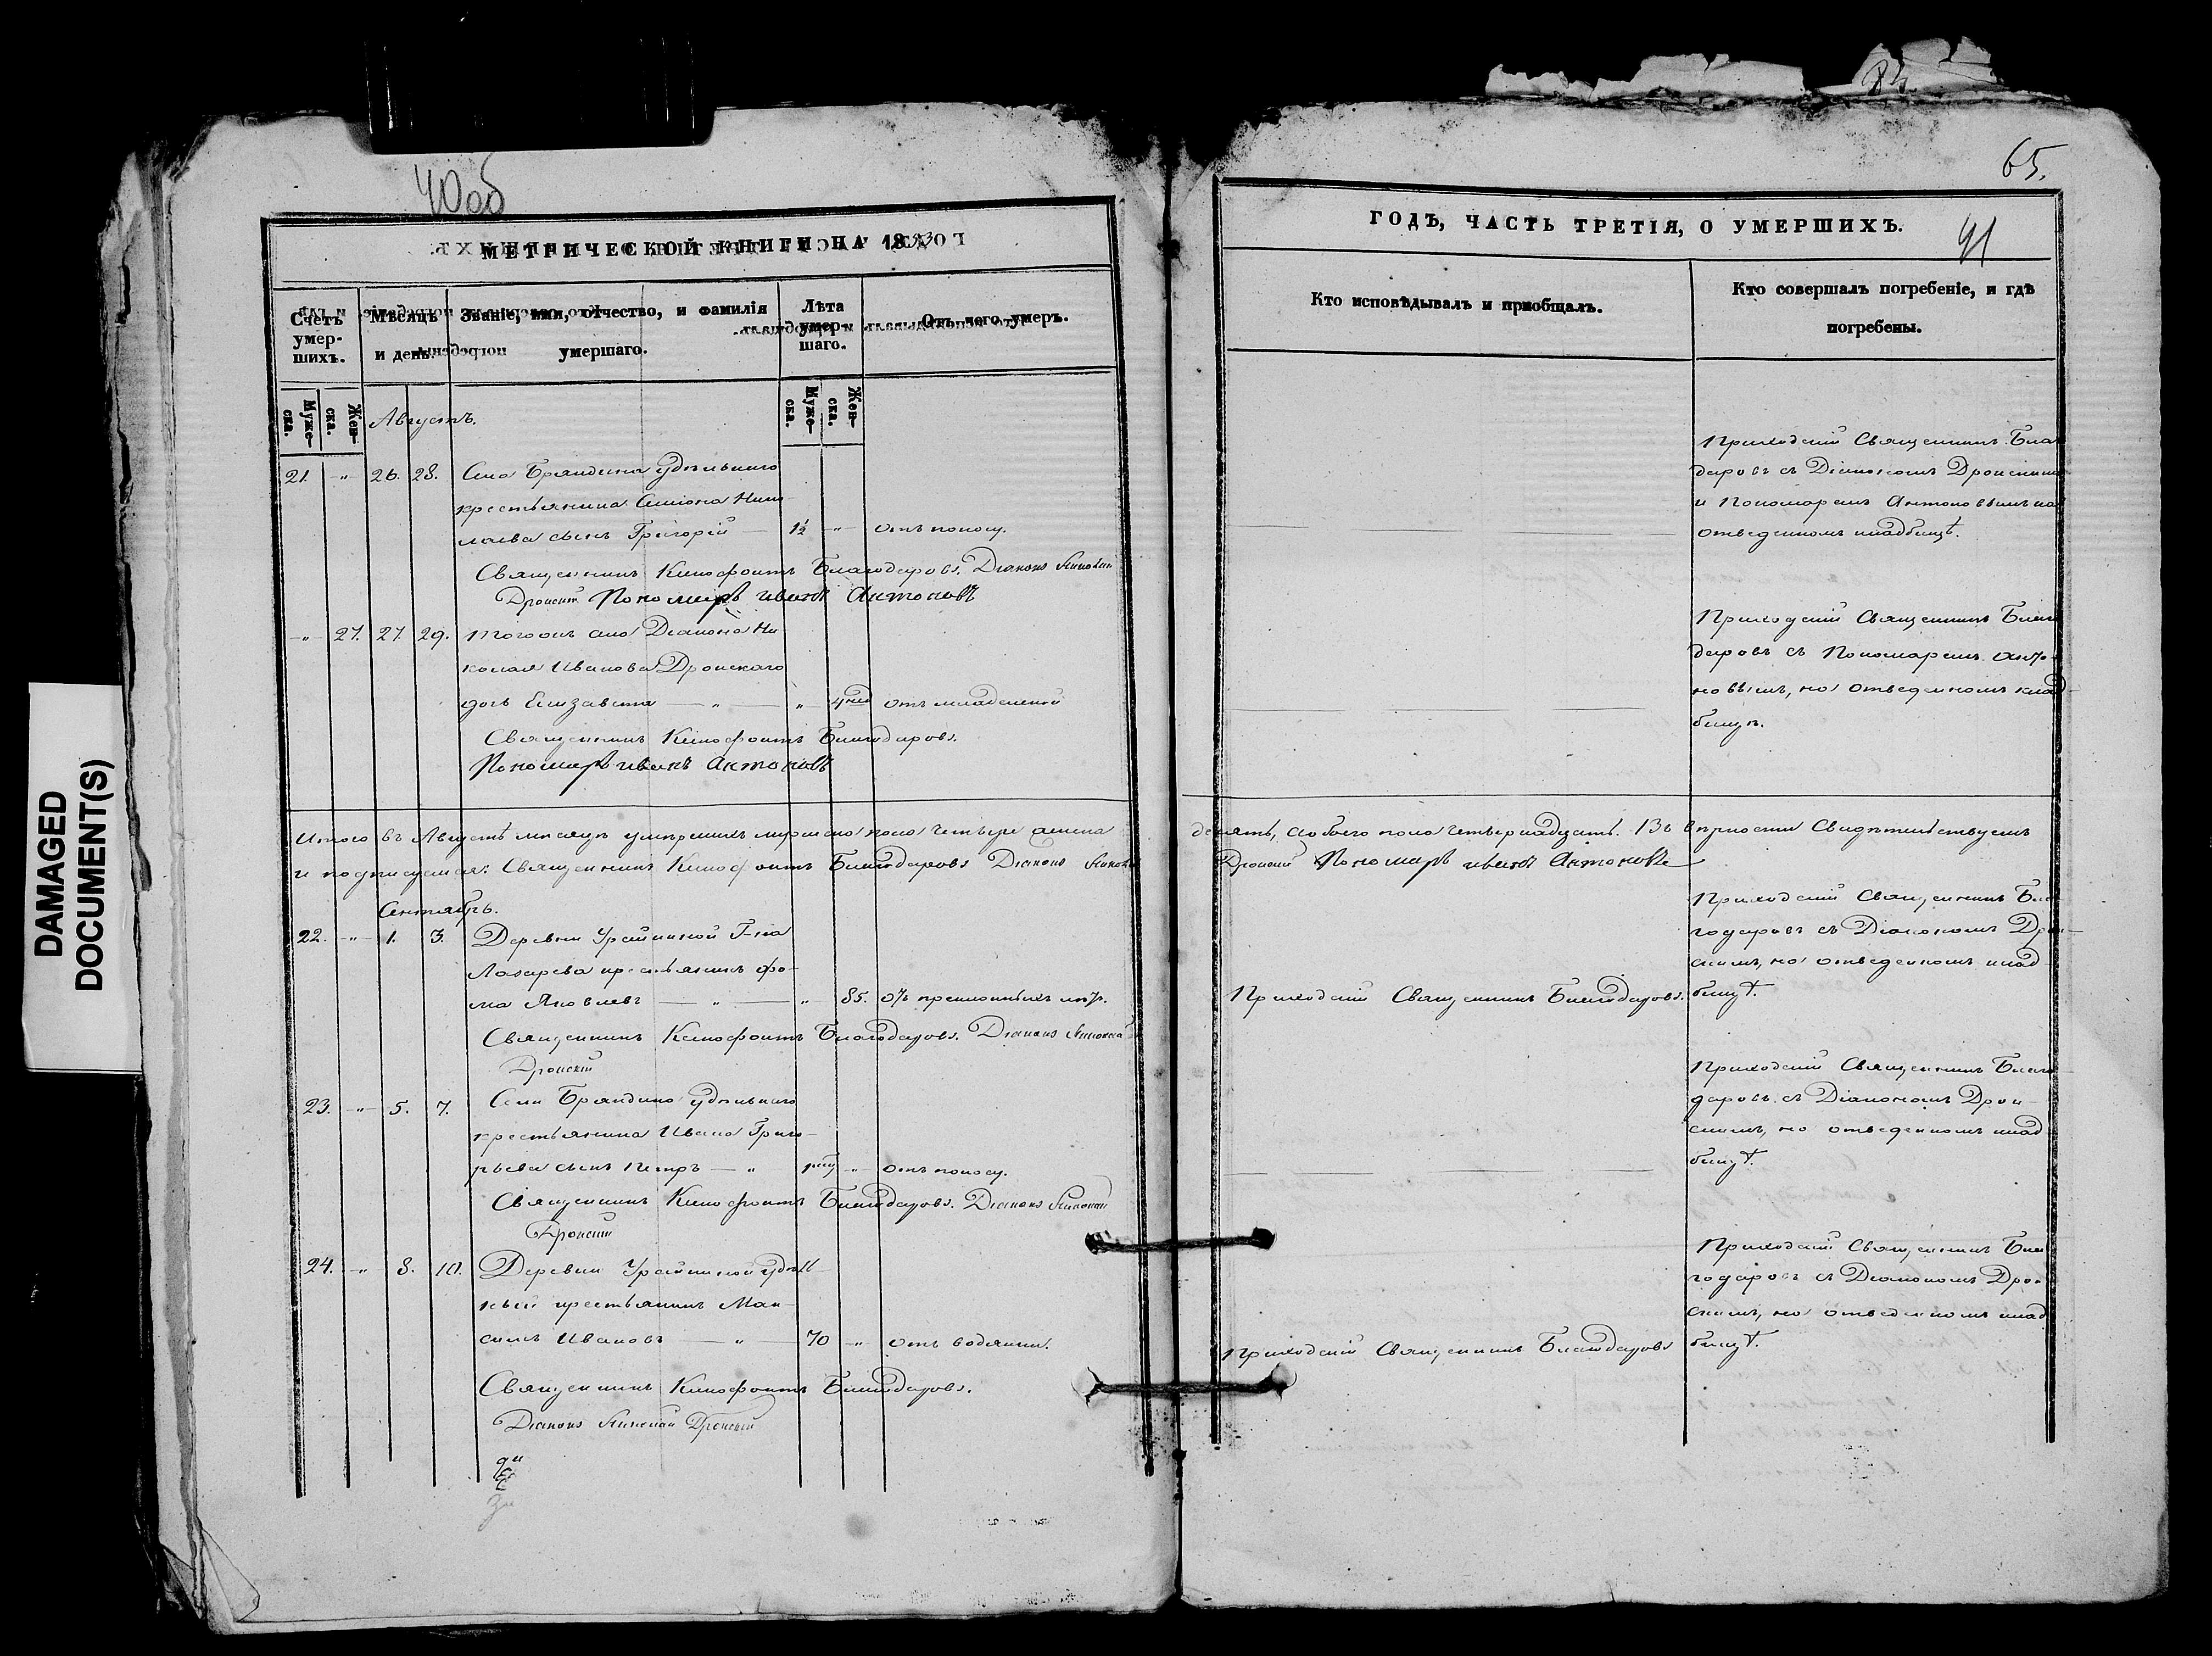 DAMAGED
DOCUMENT(S)
40об
МЕТРИЧЕСКОЙ КНИГИ НА 1853
Счетъ умер-шихъ.
Мѣсяцъ и день.
Званіе, имя, отчество, и фамилія умершаго.
Лѣта умер-шаго.
Отъ чего умеръ.
Муже-ска.
Жен-ска.
Муже-ска.
Жен-ска.
Августъ.
21. " 26. 28. Села Бряндина удѣльнаго
крестьянина Симеона Нико-
лаева сынъ Григорій — 1½ " отъ поносу.
Священникъ Ксенофонтъ Благодаровъ. Діаконъ Николай
Дронскій Пономарь Иванъ Антоновъ
" 27. 27. 29. Тогожъ села Діакона Ни
колая Иванова Дронскаго
дочь Елизавета — " — " 4 нед отъ младенской
Священникъ Ксенофонтъ Благодаровъ.
Пономарь Иванъ Антоновъ
Итого въ Августѣ мѣсяцѣ умершихъ мужеска пола четыре женска
и подписуемся: Священникъ Ксенофонтъ Благодаровъ Діаконъ Николай
Сентябрь.
22. " 1. 3. Деревни Урайкиной Г-на
Лазарева крестьянинъ Фо-
ма Яковлевъ — " — " 85. отъ преклонныхъ лѣтъ.
Священникъ Ксенофонтъ Благодаровъ. Діаконъ Николай
Дронскій
23. " 5. 7. Села Бряндина удѣльнаго
крестьянина Ивана Григо-
рьева сынъ Петръ — " " отъ поносу.
Священникъ Ксенофонтъ Благодаровъ. Діаконъ Николай
Дронскій
24. " 8. 10. Деревни Урайкиной удѣл-
ьный крестьянинъ Мак-
симъ Ивановъ — " — 70 " отъ водянки.
Священникъ Ксенофонтъ Благодаровъ.
Діаконъ Николай Дронскій
65.
ГОДЪ, ЧАСТЬ ТРЕТІЯ, О УМЕРШИХЪ.
41
Кто исповѣдывалъ и пріобщалъ.
Кто совершалъ погребеніе, и гдѣ
погребены.
Приходскій Священникъ Благо
даровъ съ Діакономъ Дронскимъ
и Пономаремъ Антоновымъ на
отведенномъ кладбищѣ.
Приходскій Священникъ Благо
даровъ съ Пономаремъ Анто-
новымъ, на отведенномъ клад-
бищѣ.
девять, а обоего пола четырнадцать. Въ вѣрности свидѣтельствуемъ
Дронскій Пономарь Иванъ Антоновъ
Приходскій Священникъ Бла-
годаровъ съ Діакономъ Дрон-
скимъ, на отведенномъ клад
Приходскій Священникъ Благодаровъ. бищѣ.
Приходскій Священникъ Благо
даровъ съ Діакономъ Дрон-
скимъ, на отведенномъ клад
бищѣ.
Приходскій Священникъ Бла
годаровъ съ Діакономъ Дрон
скимъ, на отведенномъ клад
Приходскій Священникъ Благодаровъ бищѣ.